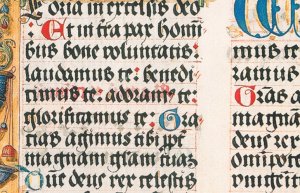 oria in excelsis deo
Et in tra pax homi
bus bone voluntatis
laudamus te: benedi
cimus te: adoram9 te:
glorificamus te: Gra
tias agimus tibi ppt
magnam glam tuaz
One deus rex celestis
mus te
ramus te
Gras a
magna
deus rex
omnipote